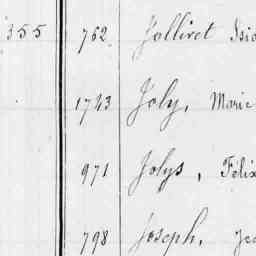 355 762 Jollivet Isid
1743 Joly, Marie
971 Jolys, Félix
798 Joseph, Je